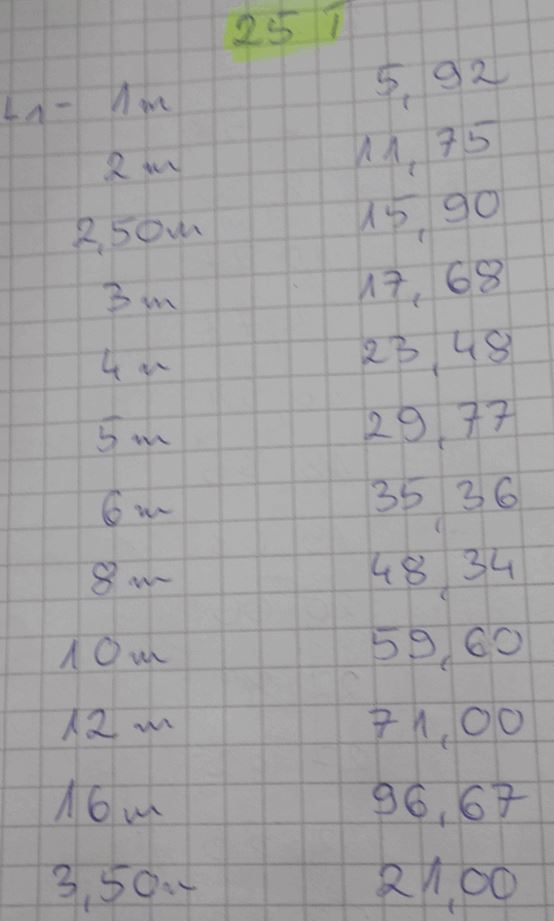 25 T
L1- 1m 5,92
2m 11,75
2,50m 15,90
3m 17,68
4m 23,48
5m 29,77
6m 35,36
8m 48,34
10m 59,60
12m 71,00
16m 96,67
3,50m 21,00